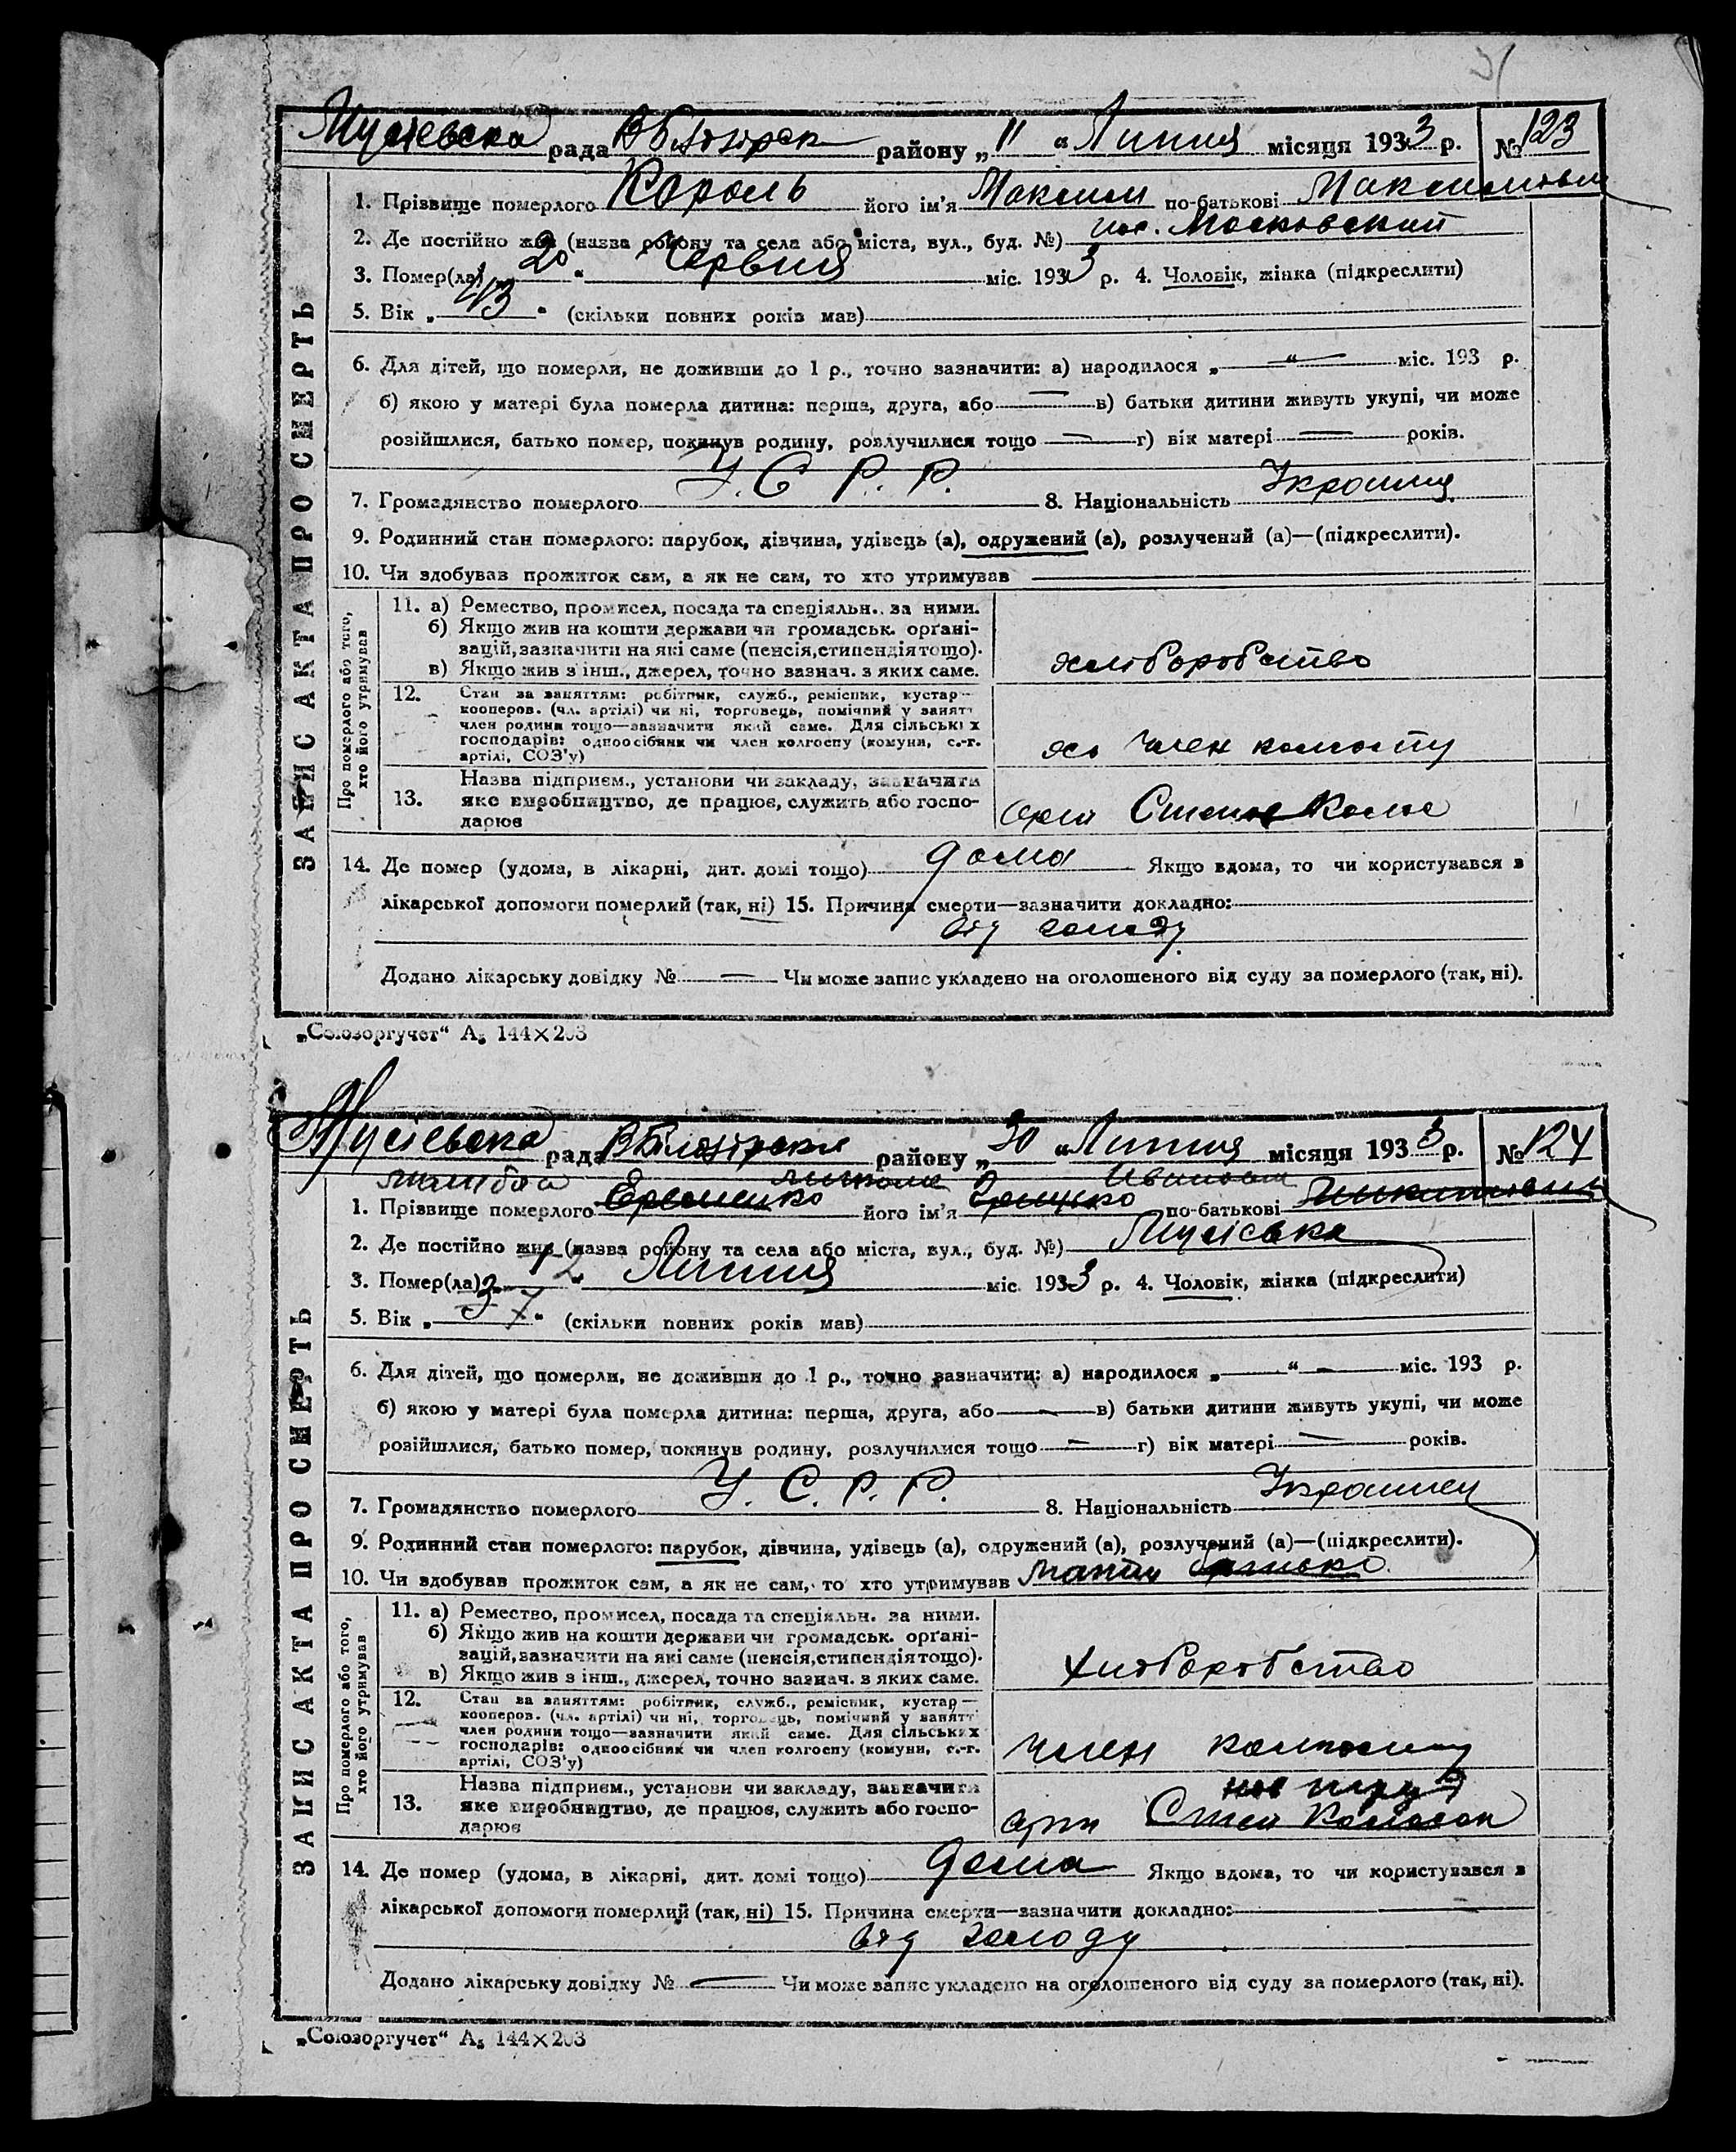 Мусієвська рада ВБілозірськ району „11“ Липня місяця 1933 р. № 123
1. Прізвище померлого Король його ім'я Максим по-батькові Максимович
2. Де постійно жив (назва району та села або міста, вул., буд. №) Московский
3. Помер(ла) „20“ Червня міс. 1933 р. 4. Чоловік, жінка (підкреслити)
5. Вік „43“ (скільки повних років мав)
6. Для дітей, що померли, не доживши до 1 р., точно зазначити: а) народилося „—“— міс. 193 р.
б) якою у матері була померла дитина: перша, друга, або — в) батьки дитини живуть укупі, чи може
розійшлися, батько помер, покинув родину, розлучилися тощо — г) вік матері — років.
7. Громадянство померлого У.С.Р.Р. 8. Національність Украинец
9. Родинний стан померлого: парубок, дівчина, удівець (а), одружений (а), розлучений (а)—(підкреслити).
10. Чи здобував прожиток сам, а як не сам, то хто утримував —
ЗАПИС АКТА ПРО СМЕРТЬ
Про померлого або того, хто його утримував
11. а) Ремество, промисел, посада та спеціяльн. за ними.
б) Якщо жив на кошти держави чи громадськ. орґані-
зацій, зазначити на які саме (пенсія, стипендія тощо).
в) Якщо жив з інш., джерел, точно зазнач. з яких саме.
хліборобство
12. Стан за заняттям: робітник, служб., ремісник, кустар—
кооперов. (чл. артілі) чи ні, торговець, помічний у занятт
член родини тощо—зазначити який саме. Для сільських
господарів: одноосібник чи член колгоспу (комуни, с.-г.
артілі, СОЗ'у)
член колгоспу
13. Назва підприєм., установи чи закладу, зазначити
яке виробництво, де працює, служить або госпо-
дарює
14. Де помер (удома, в лікарні, дит. домі тощо) дома Якщо вдома, то чи користувався з
лікарської допомоги померлий (так, ні) 15. Причина смерти—зазначити докладно:
від голоду
Додано лікарську довідку № — Чи може запис укладено на оголошеного від суду за померлого (так, ні).
„Союзоргучет“ А₅ 144×203
Мусіевська рада ВБілозірська району „30“ Липня місяця 1933 р. № 124
Иванович
1. Прізвище померлого Еременко його ім'я Грицько по-батькові Никитович
2. Де постійно жив (назва району та села або міста, вул., буд. №) Мусіевка
3. Помер(ла) „12“ Липня міс. 1933 р. 4. Чоловік, жінка (підкреслити)
5. Вік „37“ (скільки повних років мав)
6. Для дітей, що померли, не доживши до 1 р., точно зазначити: а) народилося „—“— міс. 193 р.
б) якою у матері була померла дитина: перша, друга, або — в) батьки дитини живуть укупі, чи може
розійшлися, батько помер, покинув родину, розлучилися тощо — г) вік матері — років.
7. Громадянство померлого У.С.Р.Р. 8. Національність Украинец
9. Родинний стан померлого: парубок, дівчина, удівець (а), одружений (а), розлучений (а)—(підкреслити).
10. Чи здобував прожиток сам, а як не сам, то хто утримував мати батько
ЗАПИС АКТА ПРО СМЕРТЬ
Про померлого або того, хто його утримував
11. а) Ремество, промисел, посада та спеціяльн. за ними.
б) Якщо жив на кошти держави чи громадськ. орґані-
зацій, зазначити на які саме (пенсія, стипендія тощо).
в) Якщо жив з інш., джерел, точно зазнач. з яких саме.
хліборобство
12. Стан за заняттям: робітник, служб., ремісник, кустар—
кооперов. (чл. артілі) чи ні, торговець, помічний у занятт
член родини тощо—зазначити який саме. Для сільських
господарів: одноосібник чи член колгоспу (комуни, с.-г.
артілі, СОЗ'у)
член колгоспу
13. Назва підприєм., установи чи закладу, зазначити
яке виробництво, де працює, служить або госпо-
дарює
14. Де помер (удома, в лікарні, дит. домі тощо) дома Якщо вдома, то чи користувався з
лікарської допомоги померлий (так, ні) 15. Причина смерти—зазначити докладно:
від голоду
Додано лікарську довідку № — Чи може запис укладено на оголошеного від суду за померлого (так, ні).
„Союзоргучет“ А₅ 144×203